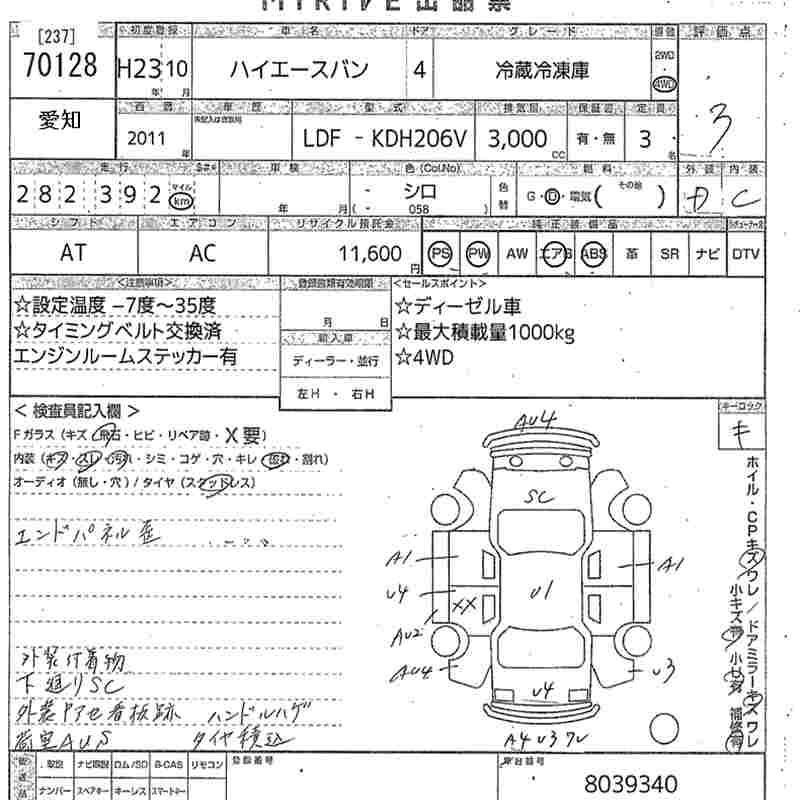 MIRIVE出品票
[237]
70128
初度登録
H23 10
年 月
車名
ハイエースバン
ドア
4
グレード
冷蔵冷凍庫
2WD
・
4WD
評価点
3
愛知
西暦
2011
年
車歴
型式
LDF - KDH206V
排気量
3,000
CC
保証書
有・無
定員
3
名
走行
282392
マイル
km
車検
年 月
色(Col.No)
- シロ
(- 058 )
色替
燃料
G・D・電気( その他 )
外装
D
内装
C
シフト
AT
エアコン
AC
リサイクル預託金
11,600
円
純正装備品
PS PW AW エアB ABS 革 SR ナビ DTV
<注意事項>
☆設定温度 −7度〜−35度
☆タイミングベルト交換済
エンジンルームステッカー有
登録書類有効期限
月 日
輸入車
ディーラー・並行
左H ・ 右H
<セールスポイント>
☆ディーゼル車
☆最大積載量1000kg
☆4WD
<検査員記入欄>
Fガラス(キズ・飛石・ヒビ・リペア跡・X要)
内装(キズ・スレ・汚れ・シミ・コゲ・穴・キレ・割れ)
オーディオ(無し・穴)/タイヤ(スタッドレス)
エンドパネル歪
外装付着物
下廻りSC
外装 看板跡 ハンドルハゲ
荷室AUS タイヤ積込
キーロック
キ
AU4
SC
A1
U4
XX
AU2
AU4
U1
A1
U3
U4
A4 U3 ワレ
ホイル・CPキズワレ/ドアミラーキズワレ
小キズ有 小U有 補修有
取説 ナビ取説 ロム/SD B-CAS リモコン
ナンバー スペアキー キーレス スマートキー
登録番号
車台番号
8039340